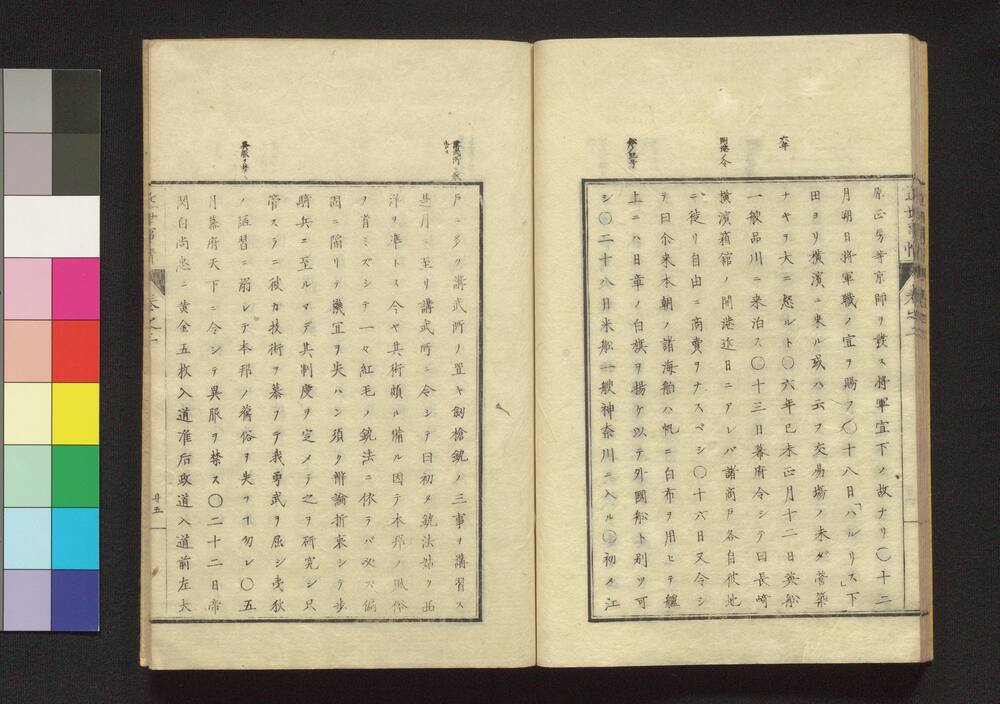 六年
開港ノ令
原正房等京師ヲ護ス将軍宣下ノ故ナリ〇十二
月朔日将軍職ノ宣ヲ賜フ〇十八日「ハルリス」下
田ヨリ横濱ニ来ル或ハ云フ交易場ノ未ダ営築
ナキヲ大ニ怒ルト〇六年己未正月十二日英船
一艘品川ニ来泊ス〇十三日幕府令シテ曰長崎
横濱箱館ノ開港近日ニアレバ諸商戸各自彼地
ニ徒リ自由ニ商賣ヲナスベシ〇十六日又令シ
テ曰尓来本朝ノ諸海船ハ帆ニ白布ヲ用ヒテ艫
上ニハ日章ノ白旗ヲ揚ケ以テ外國船ト别ツ可
シ〇二十八日米船一艘神奈川ニ入ル〇初メ江
戸ニ多ク講武所ヲ置キ劔槍銃ノ三事ヲ講習ス
是月ニ至リ講武所ニ令シテ曰初メ銃法始リ西
洋ヲ準トス今ヤ其術頗ル備ル因テ本邦ノ風俗
ノ省ミズシテ一々紅毛ノ銃法ニ依ラバ必ス偏
固ニ陥リテ機宜ヲ失ハン須ク辨論折衷シテ歩
騎兵ニ至ルマデ其制度ヲ定メテ之ヲ研究シ只
管スラニ彼カ技術ヲ慕フテ我勇武ヲ屈シ夷狄
ノ陋習ニ溺レテ本邦ノ舊俗ヲ失フヿ勿レ〇五
月幕府天下ニ令シテ異服ヲ禁ス〇二十二日帝
関白尚忠ニ黄金五枚入道准后政道入道前左大
巻之一
廿五